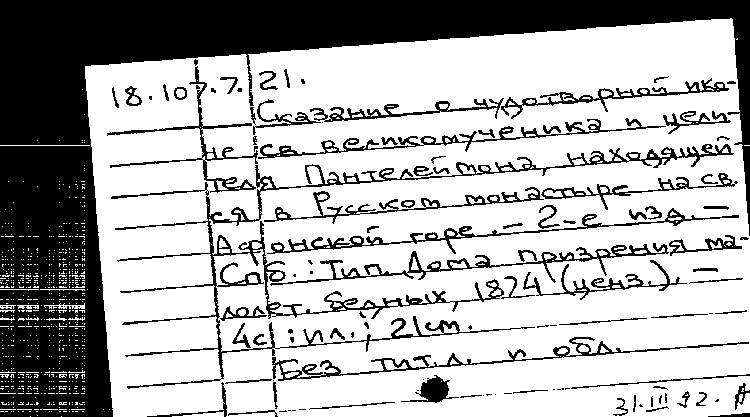 18.107.7.21.
Сказание о чудотворной ико-
не св. великомученика и цели-
теля Пантелеймона, находящей-
ся в Русском монастыре на св.
Афонской горе. – 2-е изд. –
Спб.: Тип. Дома призрения ма-
лолет. бедных, 1874 (ценз.). –
4с : ил.; 21см.
Без тит.л. и обл.
31.III 92.